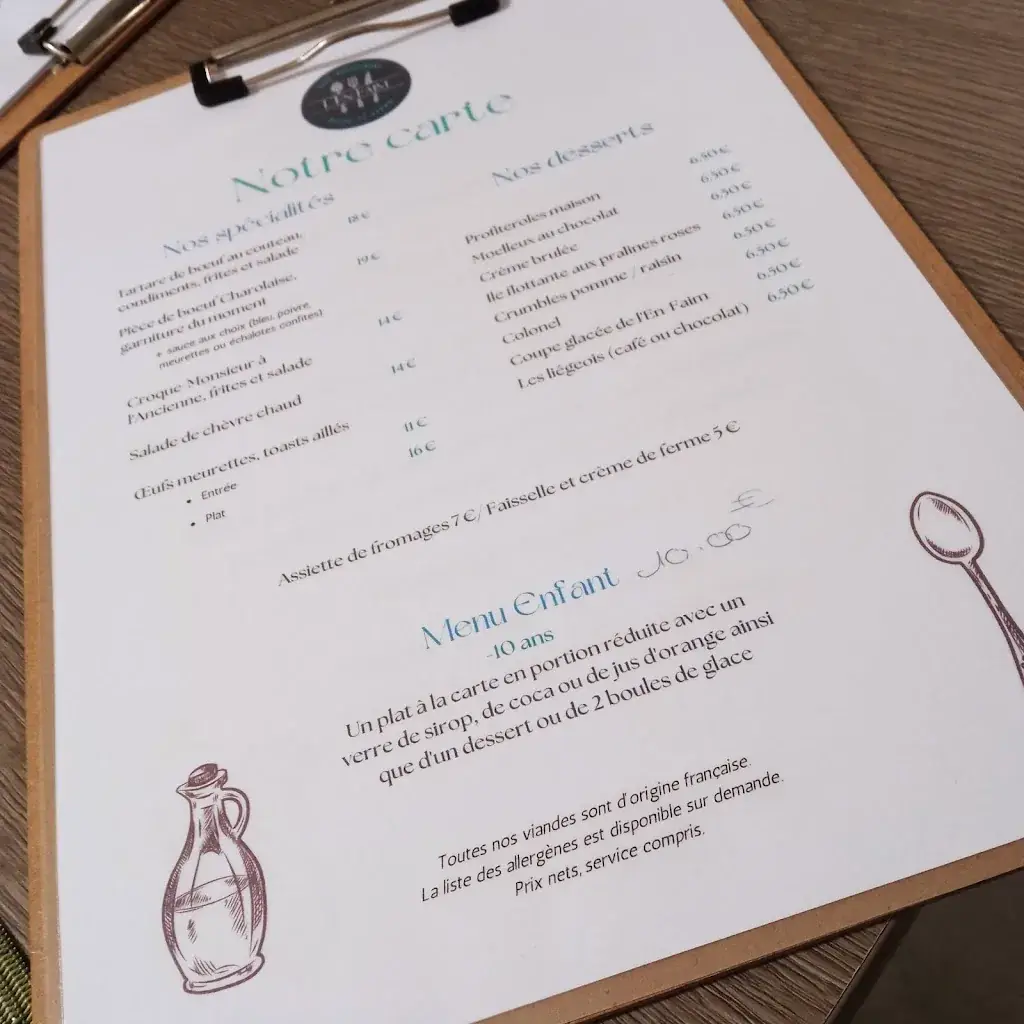 Notre carte
Nos spécialités
Tartare de bœuf au couteau, 18 €
condiments, frites et salade
Pièce de boeuf Charolaise, 19 €
garniture du moment
+ sauce aux choix (bleu, poivre,
meurettes ou échalotes confites)
Croque-Monsieur à 14 €
l'Ancienne, frites et salade
Salade de chèvre chaud 14 €
Œufs meurettes, toasts aillés
• Entrée 11 €
• Plat 16 €
Nos desserts
Profiteroles maison 6,50 €
Moelleux au chocolat 6,50 €
Crème brulée 6,50 €
Ile flottante aux pralines roses 6,50 €
Crumbles pomme / raisin 6,50 €
Colonel 6,50 €
Coupe glacée de l'En-Faim 6,50 €
Les liégeois (café ou chocolat) 6,50 €
Assiette de fromages 7 €/ Faisselle et crème de ferme 5 €
Menu Enfant 10.00 €
-10 ans
Un plat à la carte en portion réduite avec un
verre de sirop, de coca ou de jus d'orange ainsi
que d'un dessert ou de 2 boules de glace
Toutes nos viandes sont d'origine française.
La liste des allergènes est disponible sur demande.
Prix nets, service compris.